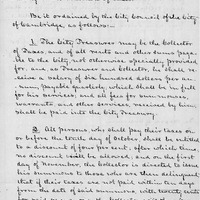 Be it ordained by the City Council of the City
of Cambridge, as follows:
1. The City Treasurer may be the Collector
of Taxes, and of all rents and other sums paya-
ble to the city, not otherwise specially provided
for, and as Treasurer and Collector, he shall re-
ceive a salary of six hundred dollars per an-
num, payable quarterly, which shall be in full
for his services, and all fees for summonses,
warrants, and other services, received by him
shall be paid into the City Treasury.
2. All persons who shall pay their taxes on
or before the tenth day of October shall be entitled
to a discount of four per cent. after which time
no discount shall be allowed, and on the first
day of November, the Collector is directed to issue
his summonses to those who are then delinquent,
that if their taxes are not paid within ten days
from the date of said summonses, with twenty cents